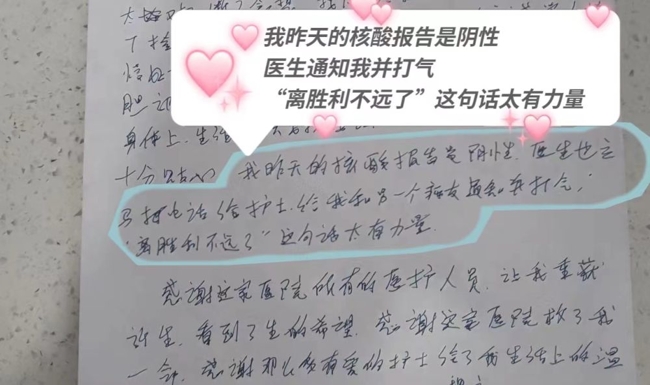 我昨天的核酸报告是阴性
医生通知我并打气
“离胜利不远了”这句话太有力量
身体上、生
十分贴心 我昨天的核酸报告是阴性,医生也立
马打电话给护士,给我和另一个病友通知并打气,
“离胜利不远了”这句话太有力量
感谢这家医院所有的医护人员,让我重获
新生,看到了生的希望,感谢这家医院救了我
一命,感谢那么多有爱的护士给了我生活上的温